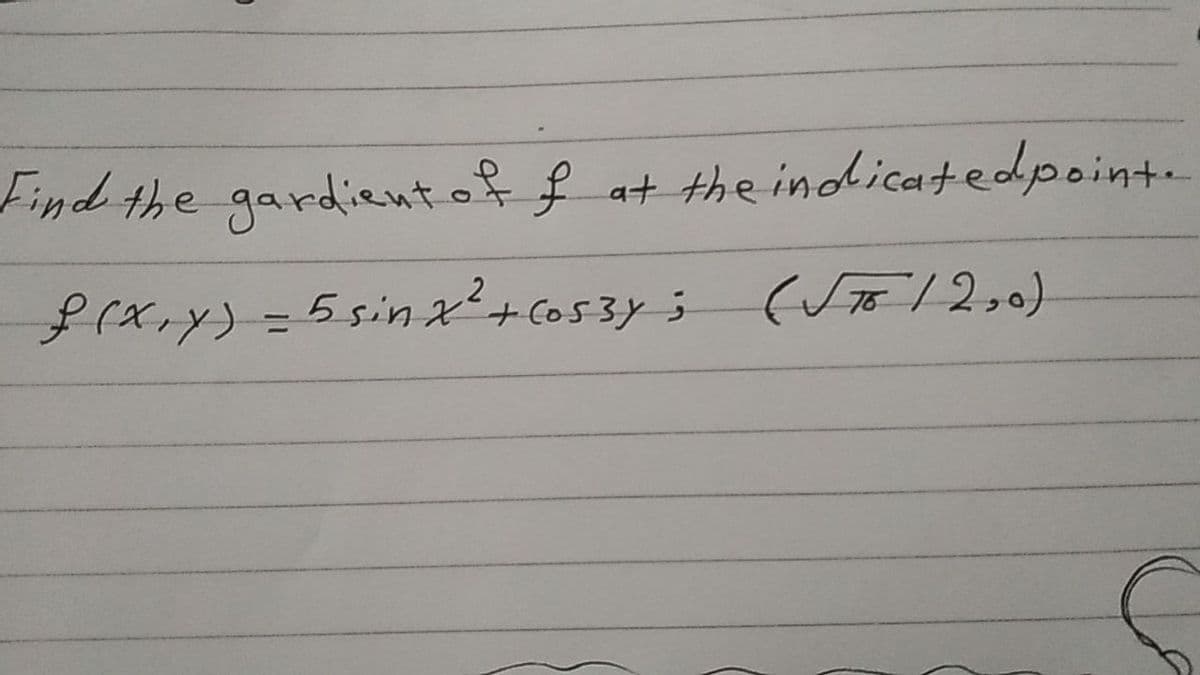 Find the gardient of f at the indicated point.
f(x,y) = 5 sin x² + cos3y ; (√π/2,0)